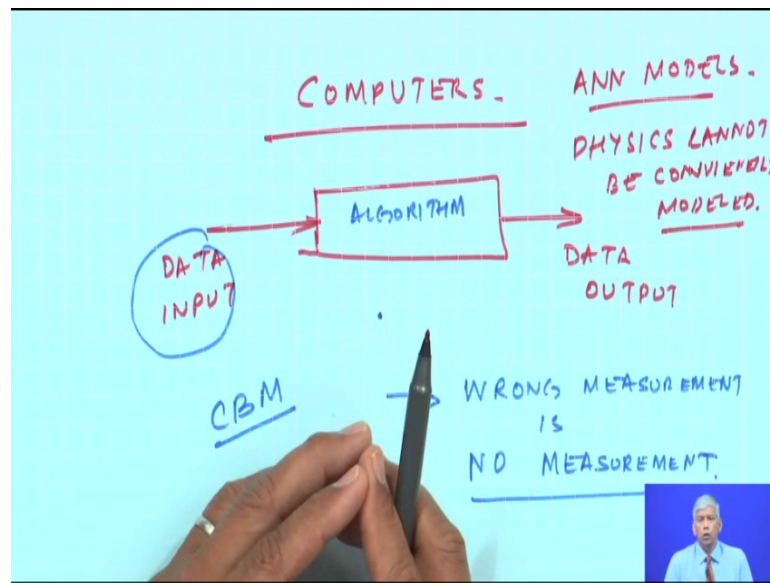 COMPUTERS.
ANN MODELS.
PHYSICS CANNOT
BE
MODELED.
ALGORITHM
DATA
INPUT
DATA
OUTPUT
CBM
→ WRONG MEASUREMENT
IS
NO MEASUREMENT.